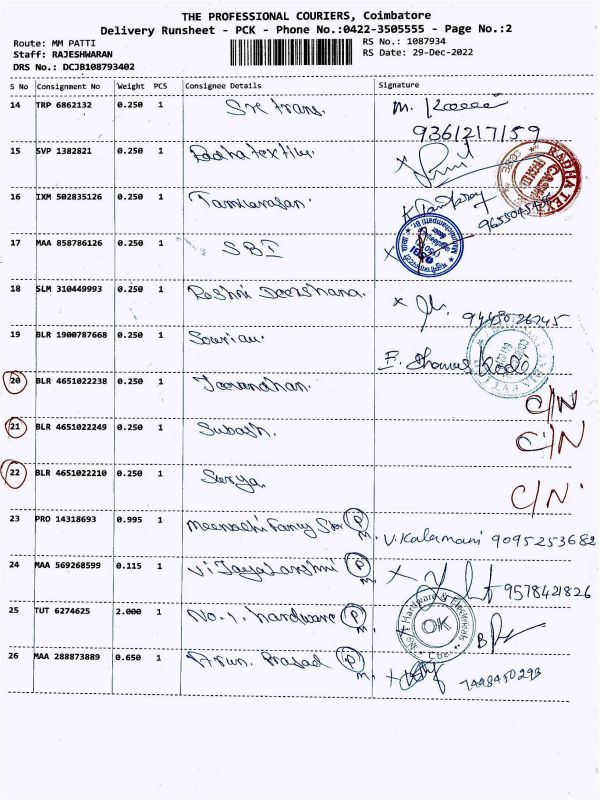 THE PROFESSIONAL COURIERS, Coimbatore
Delivery Runsheet - PCK - Phone No.:0422-3505555 - Page No.:2
Route: MM PATTI
RS No.: 1087934
Staff: RAJESHWARAN
RS Date: 29-Dec-2022
DRS No.: DCJB108793402
S No Consignment No Weight PCS Consignee Details Signature
14 TRP 6862132 0.250 1 Sre trans.
9361217159
15 SVP 1382821 0.250 1 Radha textiles
16 IXM 502835126 0.250 1 Tamilarasan
17 MAA 858786126 0.250 1 SBI
18 SLM 310449993 0.250 1 Reshni Dearshana.
19 BLR 1900787668 0.250 1
20 BLR 4651022238 0.250 1 Jeevandhan. C/N
21 BLR 4651022249 0.250 1 Subash. C/N
22 BLR 4651022210 0.250 1 Surya. C/N
23 PRO 14318693 0.995 1 Meenakhi Fancy Stor P M. V. Kalamani 9095253682
24 MAA 569268599 0.115 1 Vijaya Lakshmi P M. 9578421826
25 TUT 6274625 2.000 1 No. 1. hardware P M. OK
26 MAA 288873889 0.650 1 Arun Prasad P M. 7448450293